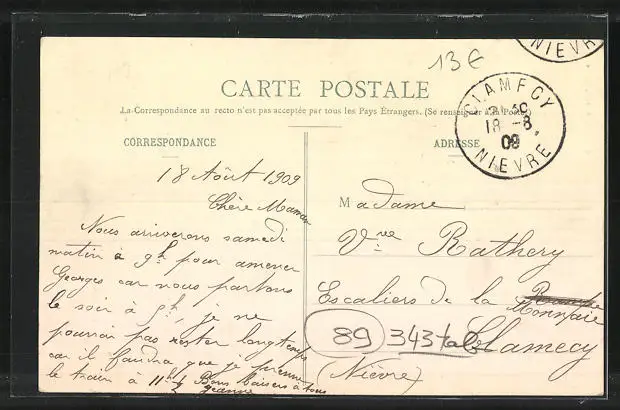 13€
NIEVR
CARTE POSTALE
La Correspondance au recto n'est pas acceptée par tous les Pays Étrangers. (Se renseigner à la Poste)
CLAMECY
18 -8
09
NIEVRE
CORRESPONDANCE
18 Août 1909
Chère Maman
Nous arriverons samedi
matin à 9h pour amener
Georges car nous partons
le soir à 9h, je ne
pourrai pas rester longtemps
car il faudra que je prenne
le train à 11h½ Bons baisers à tous
Jeanne
ADRESSE
Madame
Vve Rathery
Escaliers de la
Monnaie
Clamecy
(Nièvre)
89 343